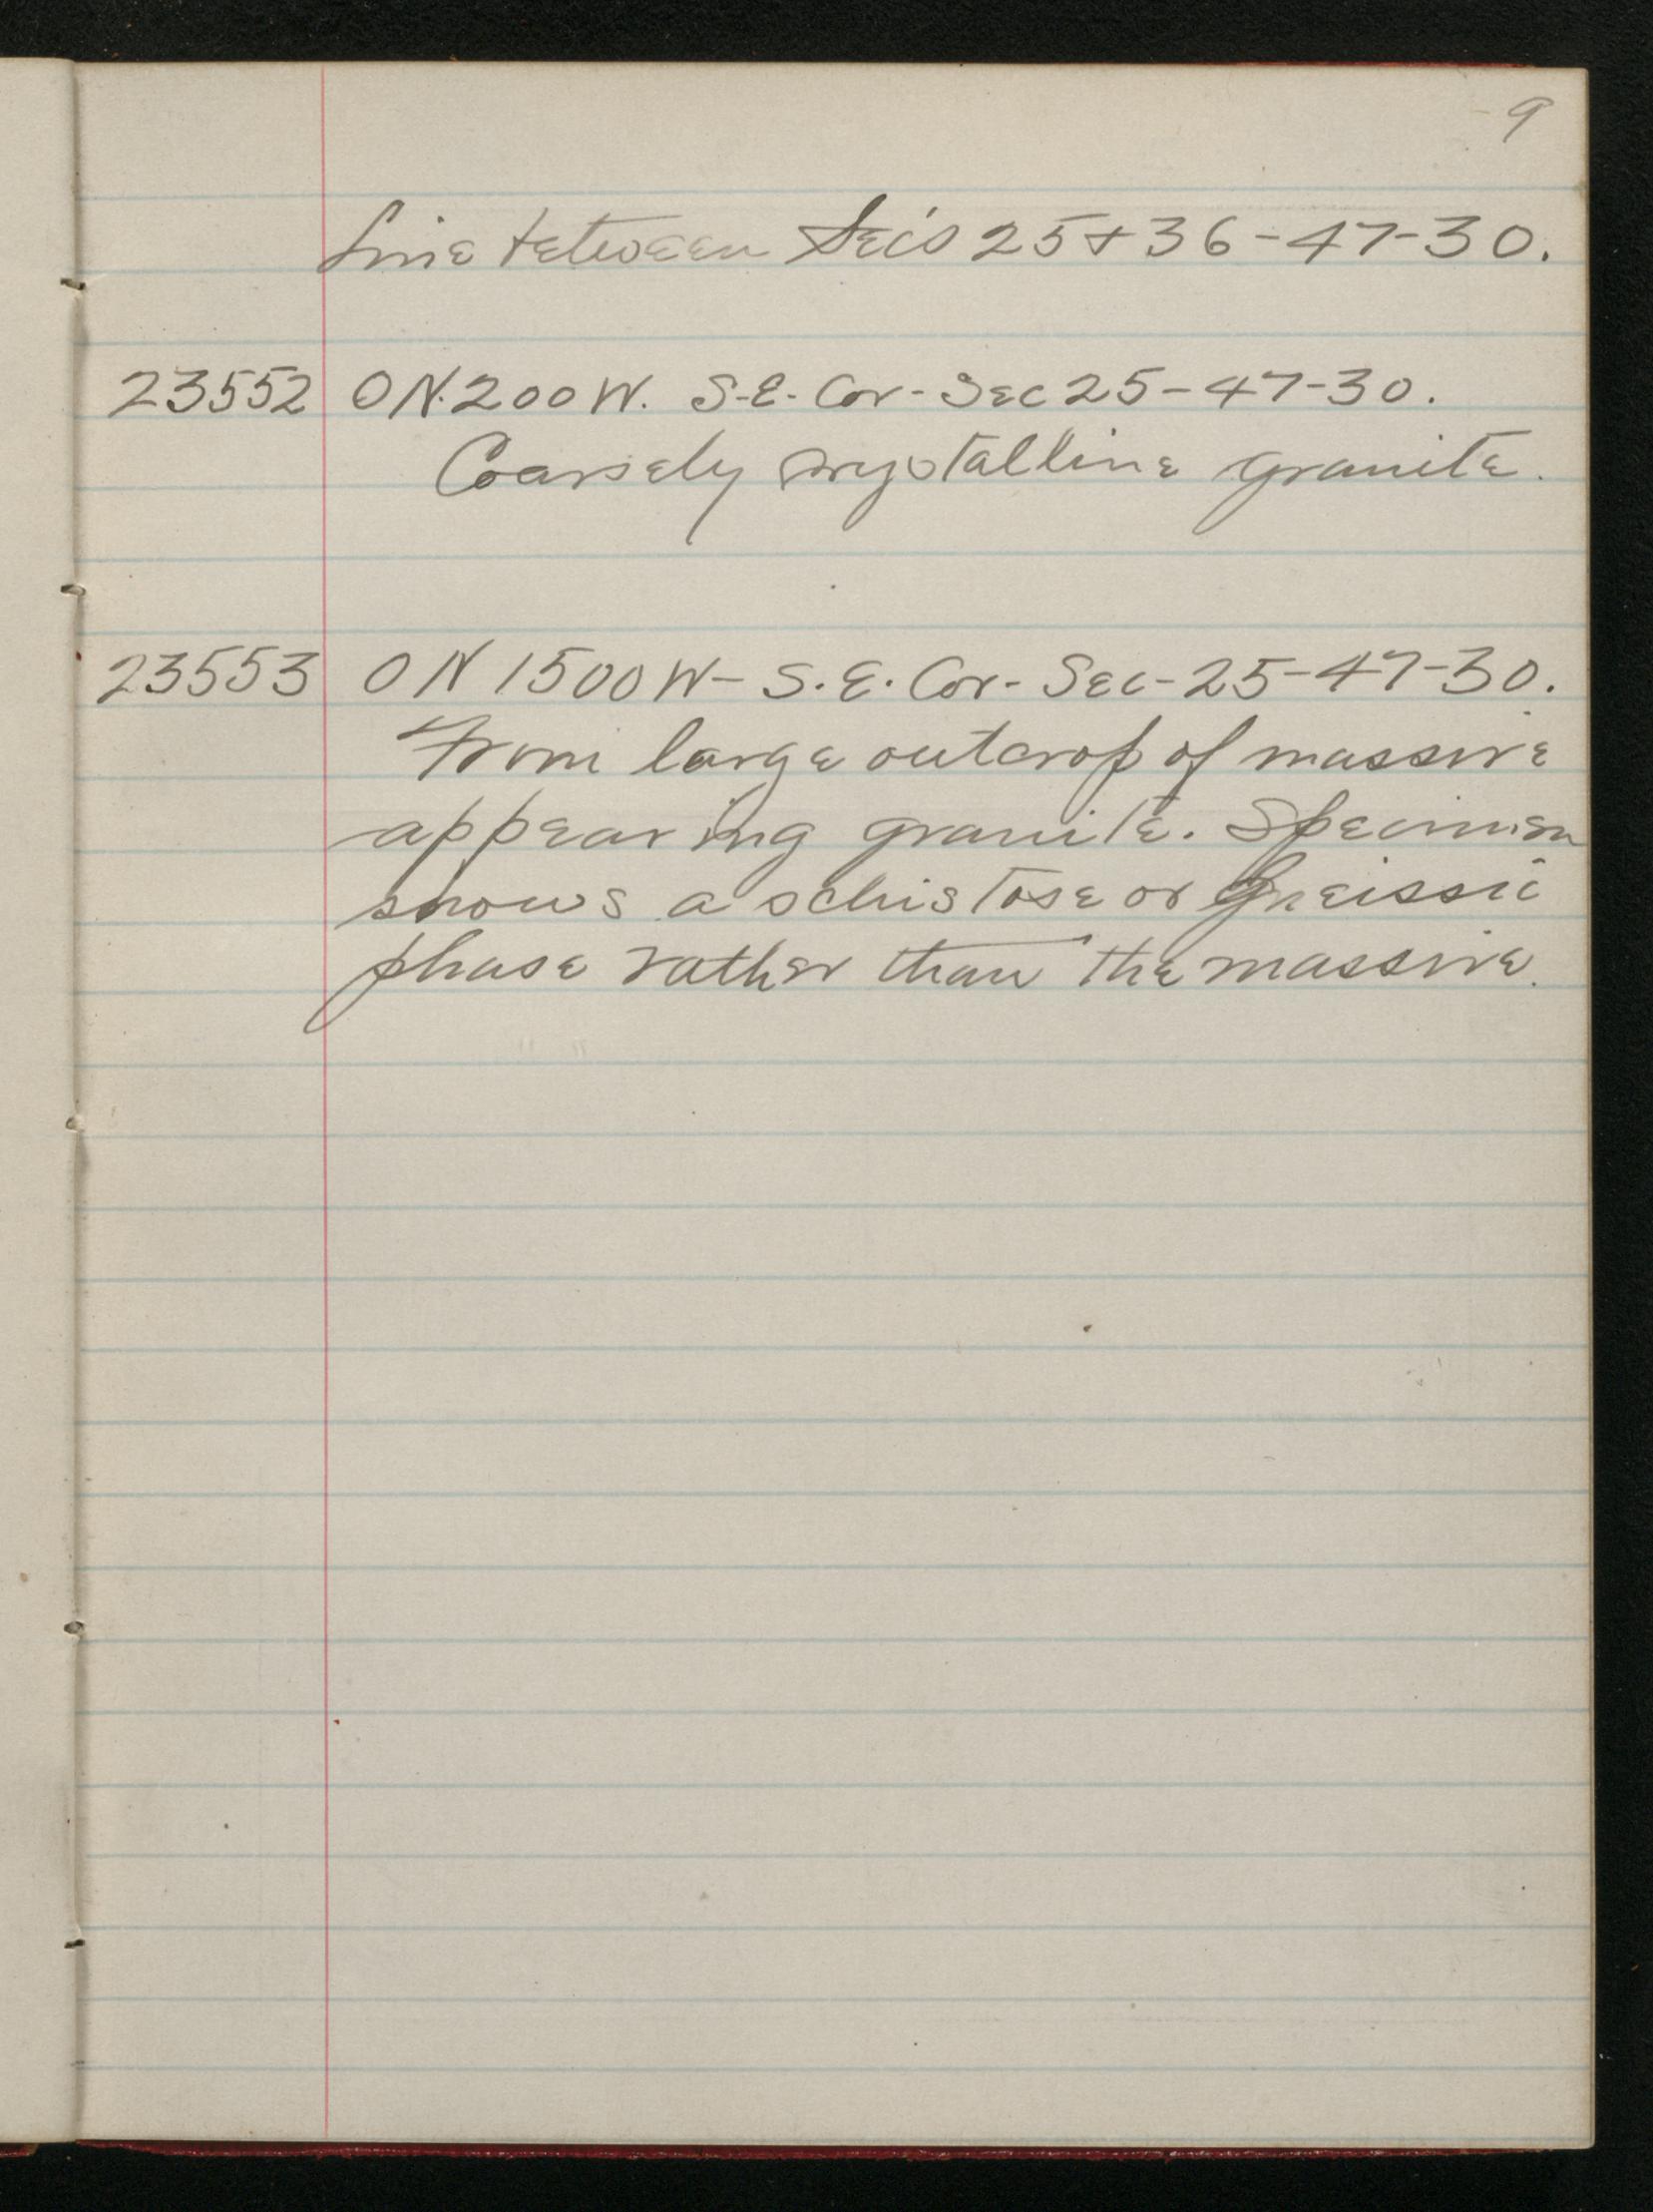 9
Line between Sec's 25 + 36-47-30.
23552 0 N. 200 W. S.E. Cor- Sec 25-47-30.
Coarsely crystalline granite.
23553 0 N 1500 W- S.E. Cor- Sec- 25-47-30.
From large outcrop of massive
appearing granite. Specimen
shows a schistose or gneissic
phase rather than the massive.